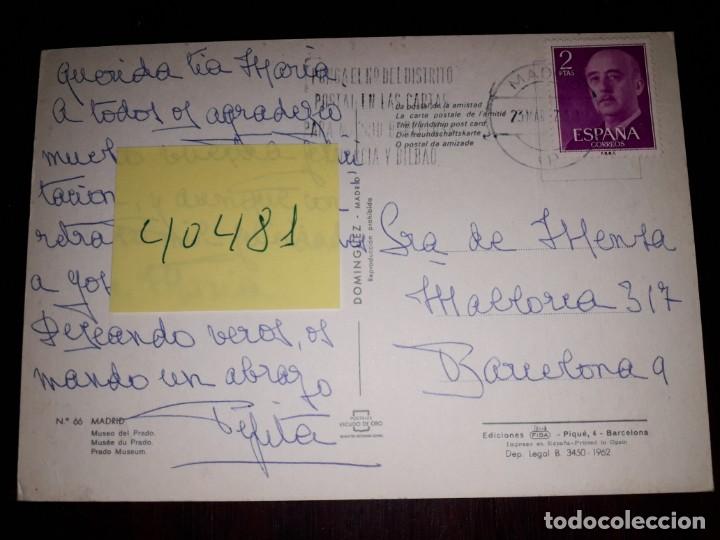 Querida tia Maria.
A todos os agradezco
mucho
tacion
retra
a
Deseando veros, os
mando un abrazo
Pepita
40481
Nº 66 MADRID
Museo del Prado.
Musée du Prado.
Prado Museum.
EL Nº DEL DISTRITO
POSTAL EN LAS CARTAS
Y BILBAO
La postal de la amistad
La carte postale de l'amitié
The friendship post card
Die freundschaftskarte
O postal da amizade
MADR
2
PTAS
ESPAÑA
CORREOS
F.N.M.T.
DOMINGUEZ - MADRID
Reproducción prohibida
POSTALES
ESCUDO DE ORO
Sra de Mensa
Mallorca 317
Barcelona 9
Ediciones FISA - Piqué, 4 - Barcelona
Impreso en España-Printed in Spain
Dep. Legal B. 3450 - 1962
todocoleccion